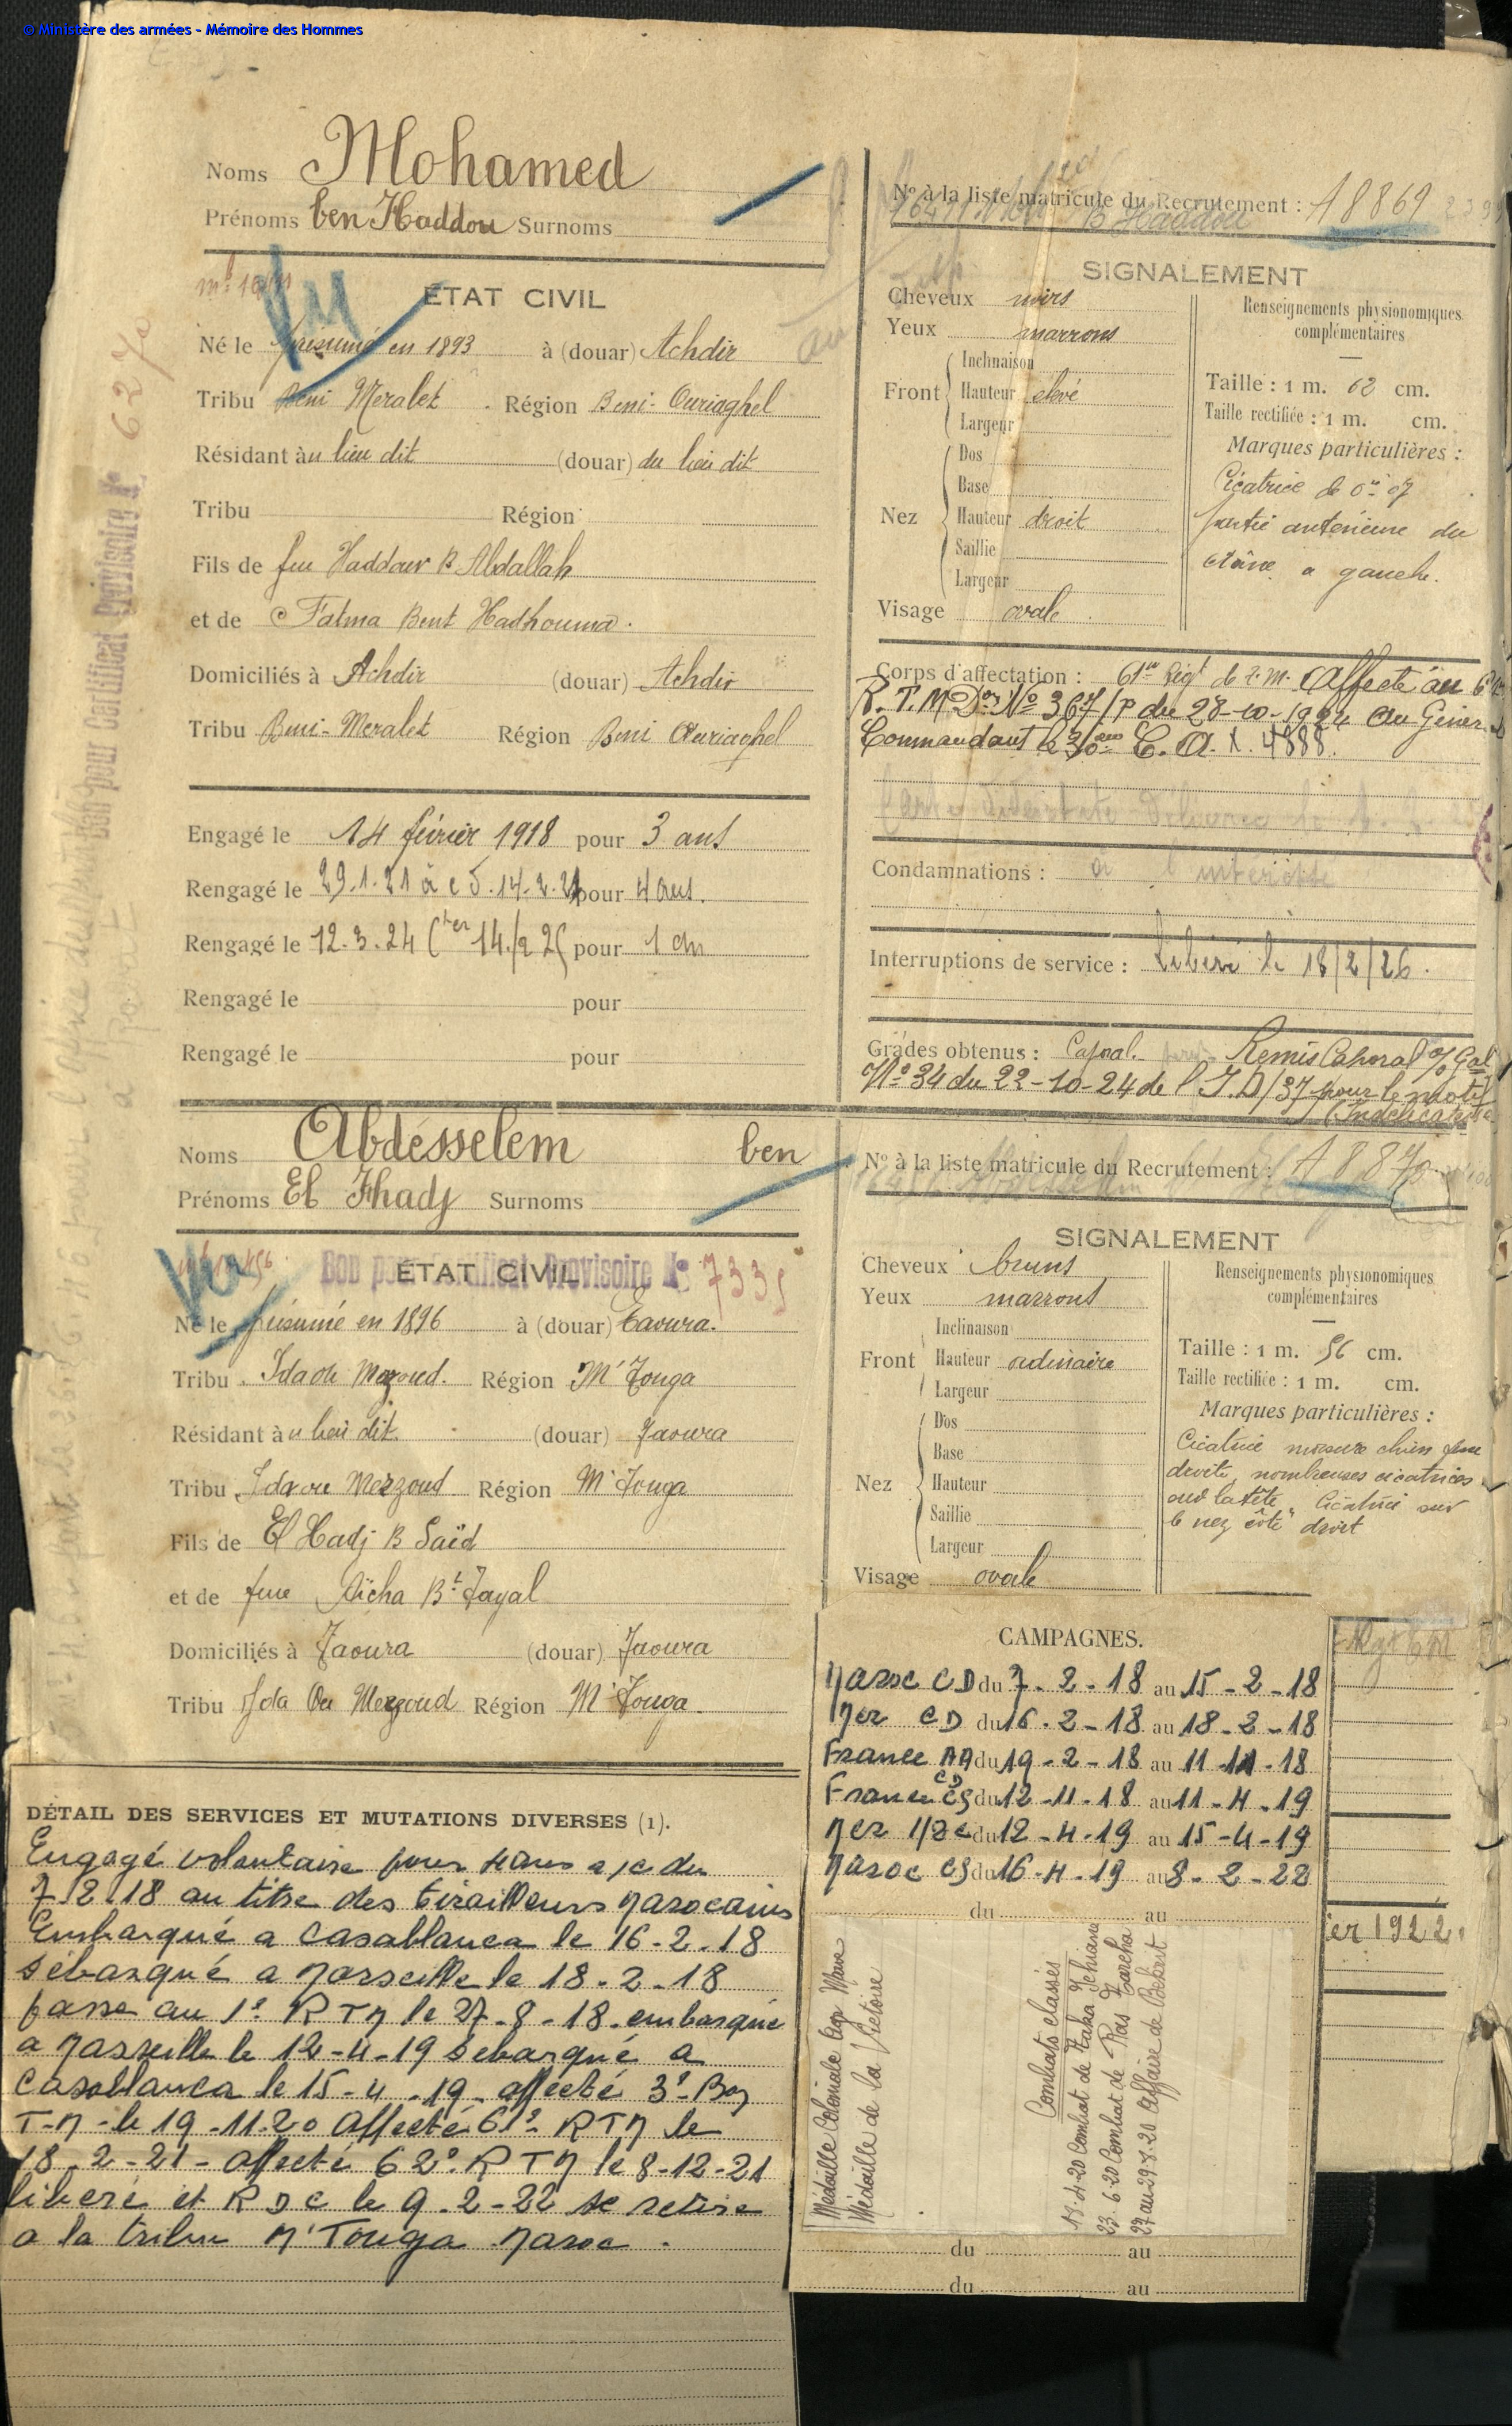 © Ministère des armées - Mémoire des Hommes
Noms Mohamed
Prénoms ben Haddou Surnoms
ÉTAT CIVIL
Né le présumé en 1893 à (douar) Achdir
Tribu Beni Meralet Région Beni-Ouriaghel
Résidant au lieu dit (douar) du lieu dit
Tribu Région
Fils de feu Haddour B Abdallah
et de Fatma Bent Hadhouma.
Domiciliés à Achdir (douar) Achdir
Tribu Beni-Meralet Région Beni Ouriaghel
Engagé le 14 février 1918 pour 3 ans
Rengagé le 29.1.21 à c d. 14.2.21 pour 4 ans.
Rengagé le 12.3.24 pour 1 an
Rengagé le pour
Rengagé le pour
Bon pour Certificat Provisoire N° 6270
N° à la liste matricule du Recrutement : 18869
SIGNALEMENT
Cheveux noirs
Yeux marrons
Front
Inclinaison
Hauteur élevé
Largeur
Nez
Dos
Base
Hauteur droit
Saillie
Largeur
Visage ovale
Renseignements physionomiques
complémentaires
Taille : 1 m. 62 cm.
Taille rectifiée : 1 m. cm.
Marques particulières :
Cicatrice de 0m07
partie antérieure du
crâne a gauche.
Corps d'affectation : 61me Régt de T.M. Affecté au
R.T.M. Don N° 367/P du 28-10-1924 du Génér
Commandant le 30me C.A. X. 4888.
Condamnations :
Interruptions de service : Libéré le 18/2/26.
Grades obtenus : Caporal. Remis Caporal o/ Gal
N° 34 du 22-10-24 de l I.D/37 pour le motif
Noms Abdesselem ben
Prénoms El Fhadj Surnoms
Bon pour Certificat Provisoire N° 7335
ÉTAT CIVIL
Né le présumé en 1896 à (douar) Taoura.
Tribu Idaou Mezoud. Région M'Touga
Résidant au lieu dit (douar) Taoura
Tribu Idaou Merzoud Région M'Touga
Fils de El Hadj B Saïd
et de feue Aïcha Bt Tayal
Domiciliés à Taoura (douar) Taoura
Tribu Ida Ou Mezzoud Région M'Touga.
N° à la liste matricule du Recrutement : 18870
SIGNALEMENT
Cheveux bruns
Yeux marrons
Front
Inclinaison
Hauteur ordinaire
Largeur
Nez
Dos
Base
Hauteur
Saillie
Largeur
Visage ovale
Renseignements physionomiques
complémentaires
Taille : 1 m. 56 cm.
Taille rectifiée : 1 m. cm.
Marques particulières :
Cicatrice morsure chien
droite, nombreuses cicatrices
sur la tête, Cicatrice sur
le nez côté droit
DÉTAIL DES SERVICES ET MUTATIONS DIVERSES (1).
Engagé volontaire pour 4 ans a /c du
7.2.18 au titre des tirailleurs Marocains
Embarqué a Casablanca le 16-2-18
débarqué a Marseille le 18-2-18
passe au 1e RTM le 27-8-18 embarqué
a Marseille le 12-4-19 débarqué a
Casablanca le 15-4-19 affecté 3e Bon
T-M- le 19-11-20 affecté 61e RTM le
18-2-21- affecté 62e RTM le 8-12-21
libéré et RDC le 9-2-22 se retire
a la tribu M'Touga Maroc.
CAMPAGNES.
Maroc CD du 7-2-18 au 15-2-18
Mer CD du 16-2-18 au 18-2-18
France AA du 19-2-18 au 11-11-18
France CS du 12-11-18 au 11-4-19
Mer 1/2 C du 12-4-19 au 15-4-19
Maroc CS du 16-4-19 au 8-2-22
du au
Médaille Coloniale Agr Maroc
Médaille de la Victoire
Combats classés
23.6.20 Combat de Ras Tarcha
27 au 29.8.20 Affaire de Bekert
du au
du au
er 1922.